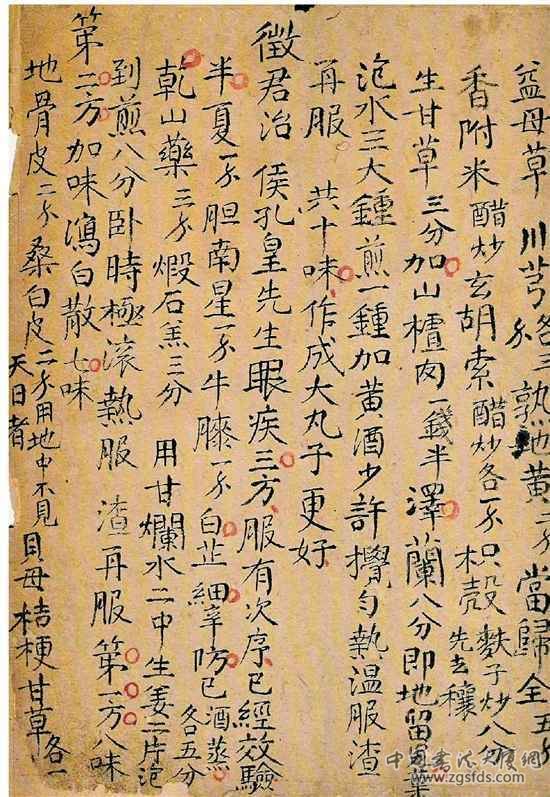 益母草 川芎各三分 熟地黄二分 當歸全五分
香附米醋炒玄胡索醋炒各一分枳殼麩子炒八分先去穰
生甘草三分加山楂肉一錢半澤蘭八分即地留
泡水三大鍾煎一鍾加黄酒少許攪勻熱温服渣
再服 共十味作成大丸子更好
徵君治 侯孔皇先生眼疾三方服有次序已經效驗
半夏一分胆南星一分牛膝一分白芷細辛防已酒蒸各五分
乾山藥三分煅石羔三分 用甘爛水二中生姜二片泡
到煎八分卧時極滚熱服 渣再服 第一方八味
第二方加味瀉白散七味
地骨皮二分桑白皮二分用地中不見天日者貝母桔梗甘草各一
中国书法大厦網
www.zgsfds.com